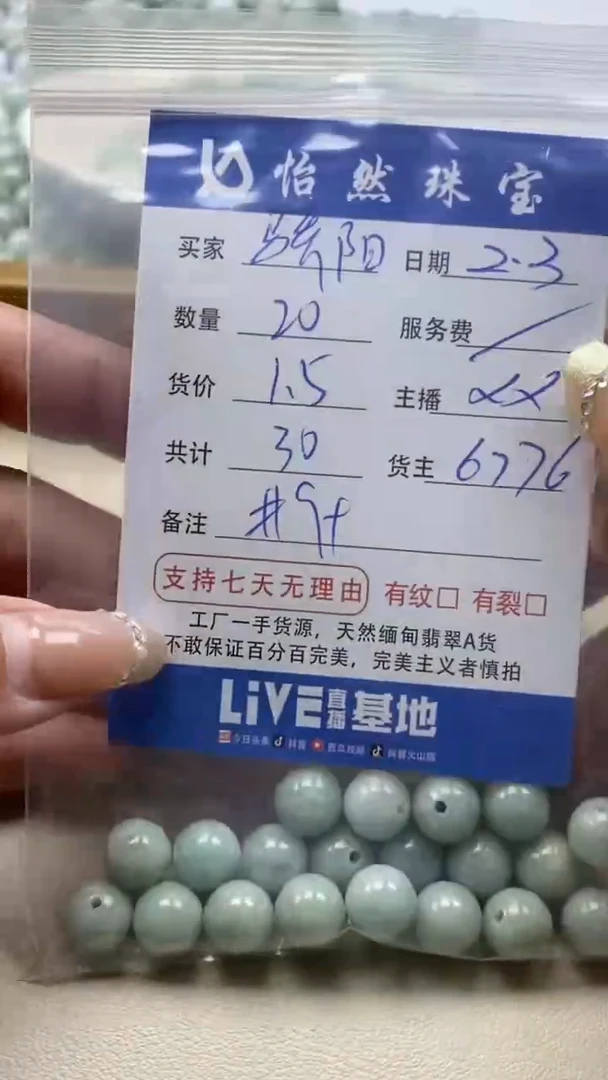 怡然珠宝
买家 骄阳 日期 2.3
数量 20 服务费 /
货价 1.5 主播 xx
共计 30 货主 6776
备注 #9t
支持七天无理由 有纹□ 有裂□
工厂一手货源，天然缅甸翡翠A货
不敢保证百分百完美，完美主义者慎拍
LiVE直播基地
今日头条 抖音 西瓜视频 抖音火山版